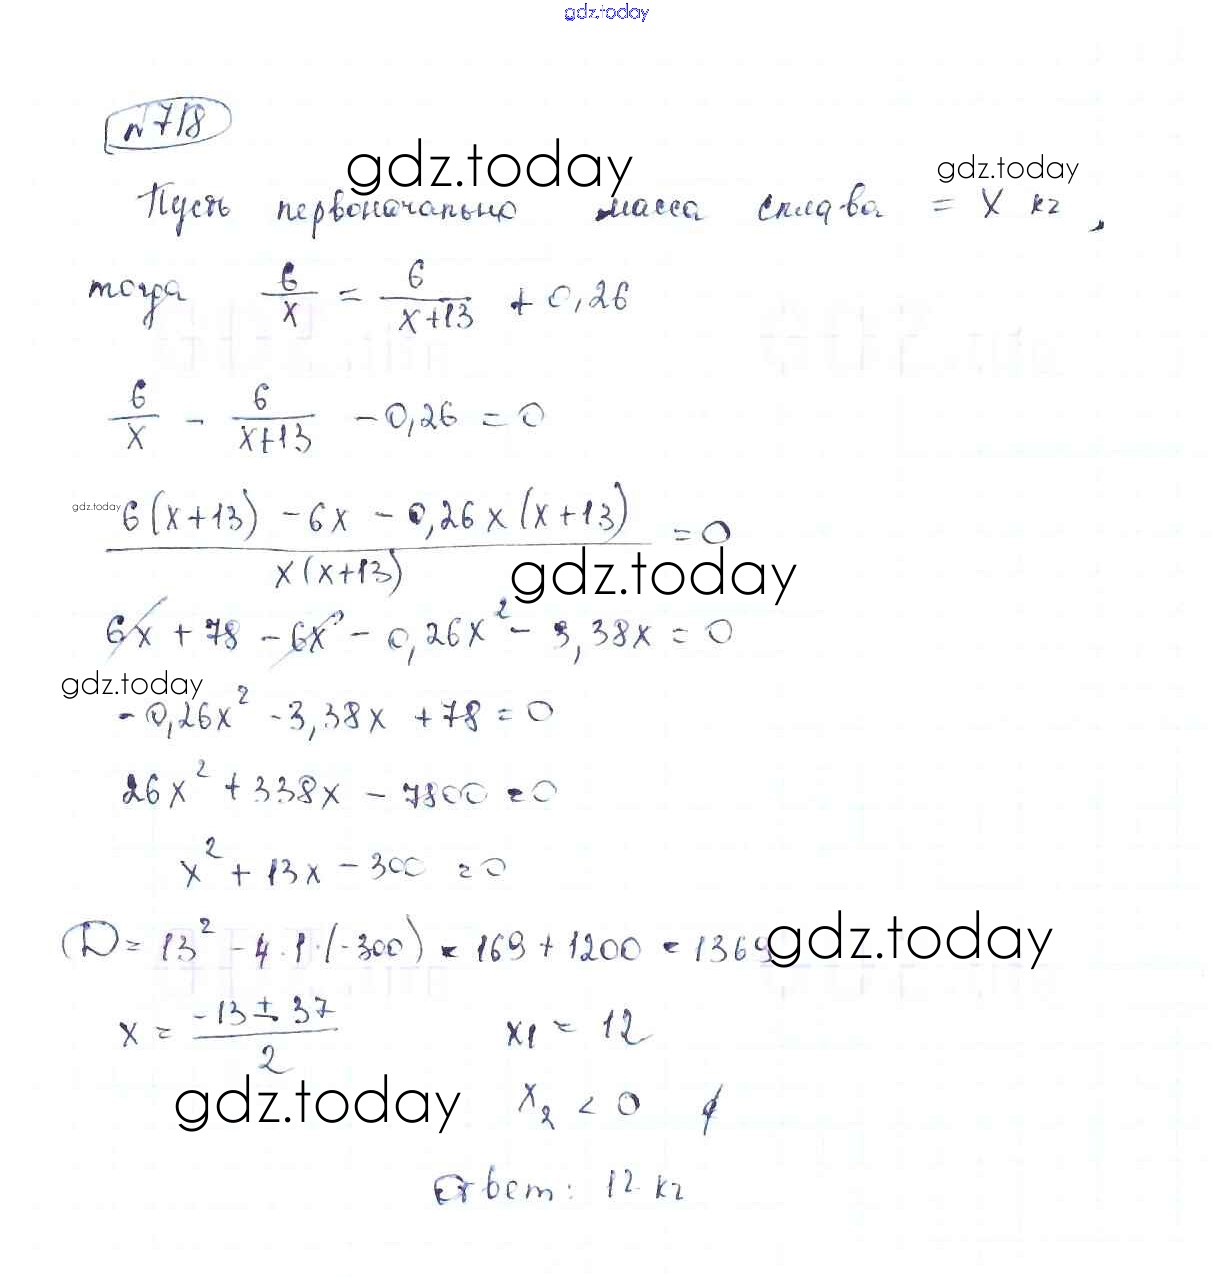 gdz.today
№718
gdz.today gdz.today
Пусть первоначально масса сплава = x кг,
тогда 6/x = 6/(x+13) + 0,26
6/x - 6/(x+13) - 0,26 = 0
gdz.today
(6(x+13) - 6x - 0,26x(x+13))/(x(x+13)) = 0
gdz.today
6x + 78 - 6x - 0,26x² - 3,38x = 0
gdz.today
-0,26x² - 3,38x + 78 = 0
26x² + 338x - 7800 = 0
x² + 13x - 300 = 0
D = 13² - 4·1·(-300) = 169 + 1200 = 1369
gdz.today
x = (-13 ± 37)/2 x₁ = 12
gdz.today
x₂ < 0
Ответ: 12 кг